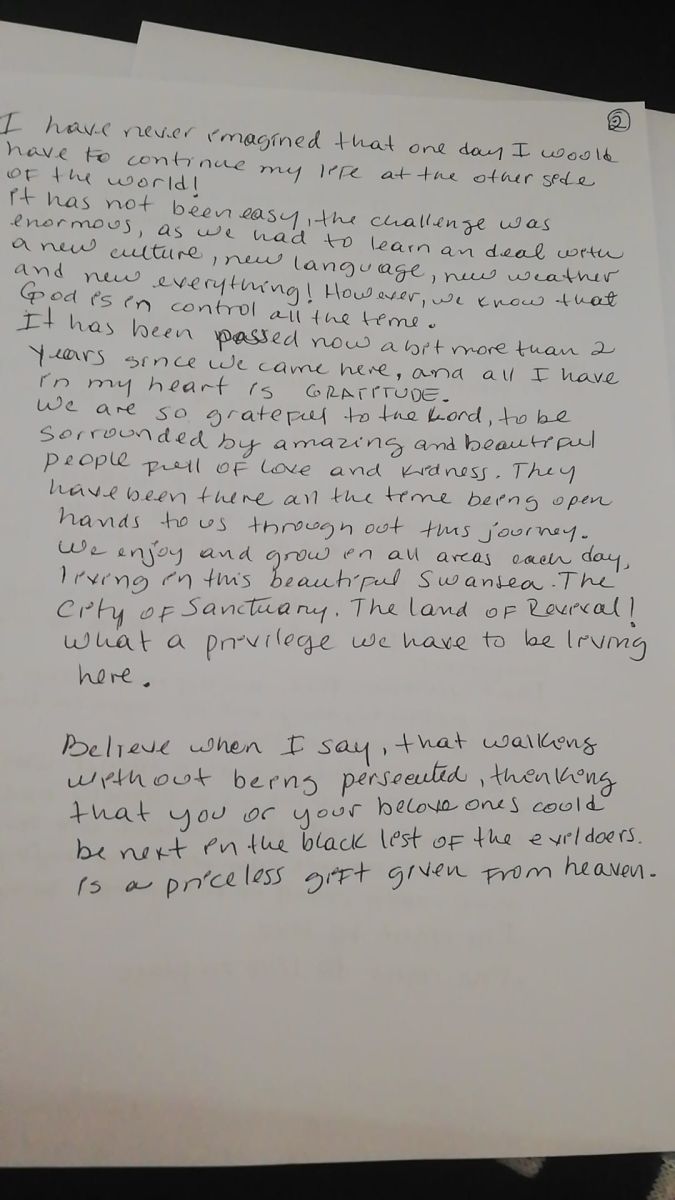 2
I have never imagined that one day I would
have to continue my life at the other side
of the world!
it has not been easy, the challenge was
enormous, as we had to learn an deal with
a new culture, new language, new weather
and new everything! However, we know that
God is in control all the time.
It has been passed now a bit more than 2
years since we came here, and all I have
in my heart is GRATITUDE.
We are so grateful to the Lord, to be
sorrounded by amazing and beautiful
people full of love and kidness. They
have been there all the time being open
hands to us through out this journey.
We enjoy and grow in all areas each day,
living in this beautiful Swansea. The
City of Sanctuary. The land of Revival!
what a privilege we have to be living
here.
Believe when I say, that walking
without being persecuted, thinking
that you or your belove ones could
be next in the black list of the evildoers.
is a priceless gift given from heaven.